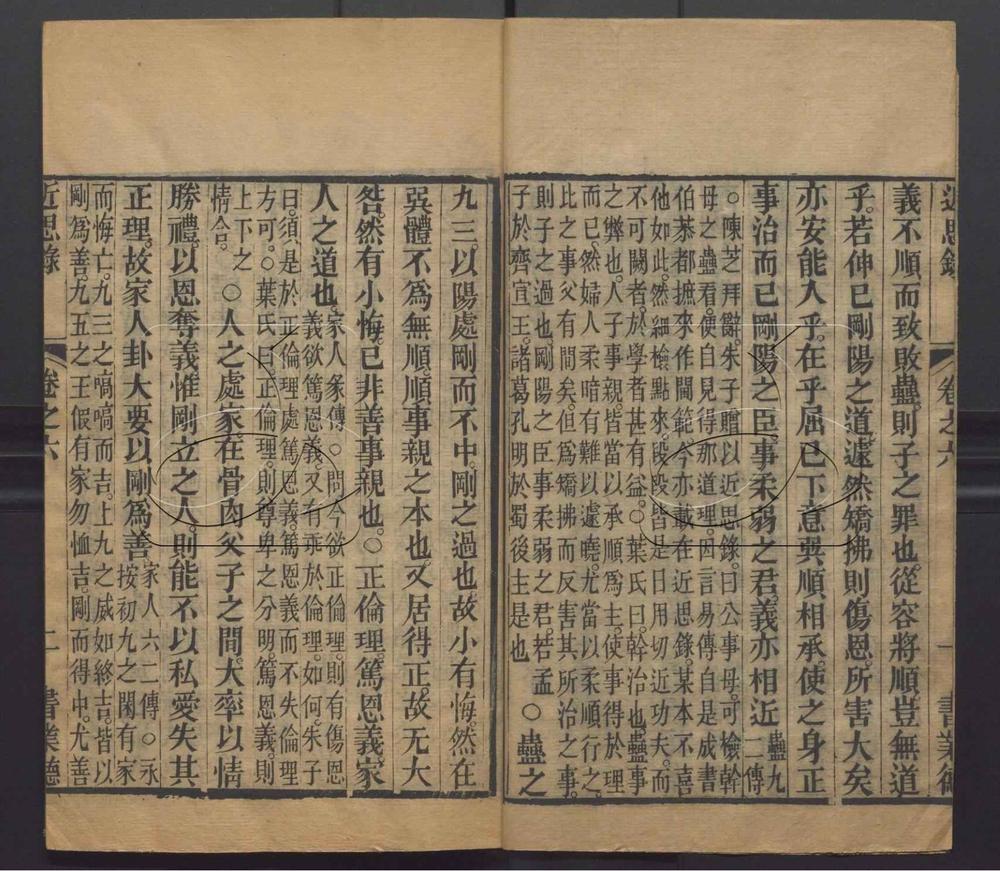 近思錄 卷之六 一 書業德
義不順而致敗蠱則子之罪也從容將順豈無道
乎。若伸已剛陽之道。遽然矯拂則傷恩。所害大矣
亦安能入乎。在乎屈已下意巽順相承。使之身正
事治而已。剛陽之臣事柔弱之君。義亦相近 蠱九
二傳
○陳芝拜辭。朱子贈以近思錄。曰公事母。可檢幹
母之蠱看。便自見得那道理。因言易傳自是成書
伯恭都摭來作閫範。今亦載在近思錄。某本不喜
他如此。然細檢點來。段段皆是日用切近功夫。而
不可闕者。於學者甚有益。○葉氏曰。幹治也。蠱事
之弊也。人子事親。皆當以承順爲主。使事得於理
而已。然婦人柔暗。有難以遽曉。尤當以柔順行之。
比之事父有間矣。但爲矯拂而反害其所治之事。
則子之過也。剛陽之臣事柔弱之君。若孟
子於齊宣王。諸葛孔明於蜀後主是也 ○蠱之
九三。以陽處剛而不中。剛之過也。故小有悔。然在
巽體不爲無順。順事親之本也。又居得正。故无大
咎。然有小悔。已非善事親也。○正倫理。篤恩義。家
人之道也。家人彖傳。○問今欲正倫理。則有傷恩
義。欲篤恩義。又有乖於倫理。如何。朱子
曰。須是於正倫理處篤恩義。篤恩義而不失倫理
方可。○葉氏曰。正倫理。則尊卑之分明。篤恩義。則
上下之
情合。 ○人之處家。在骨肉父子之間。大率以情
勝禮。以恩奪義。惟剛立之人。則能不以私愛失其
正理。故家人卦大要以剛爲善。家人六二傳 ○永
按初九之閑有家
而悔亡。九三之嗃嗃而吉。上九之威如終吉。皆以
剛爲善。九五之王假有家勿恤吉。剛而得中。尤善
近思錄 卷之六 二 書業德